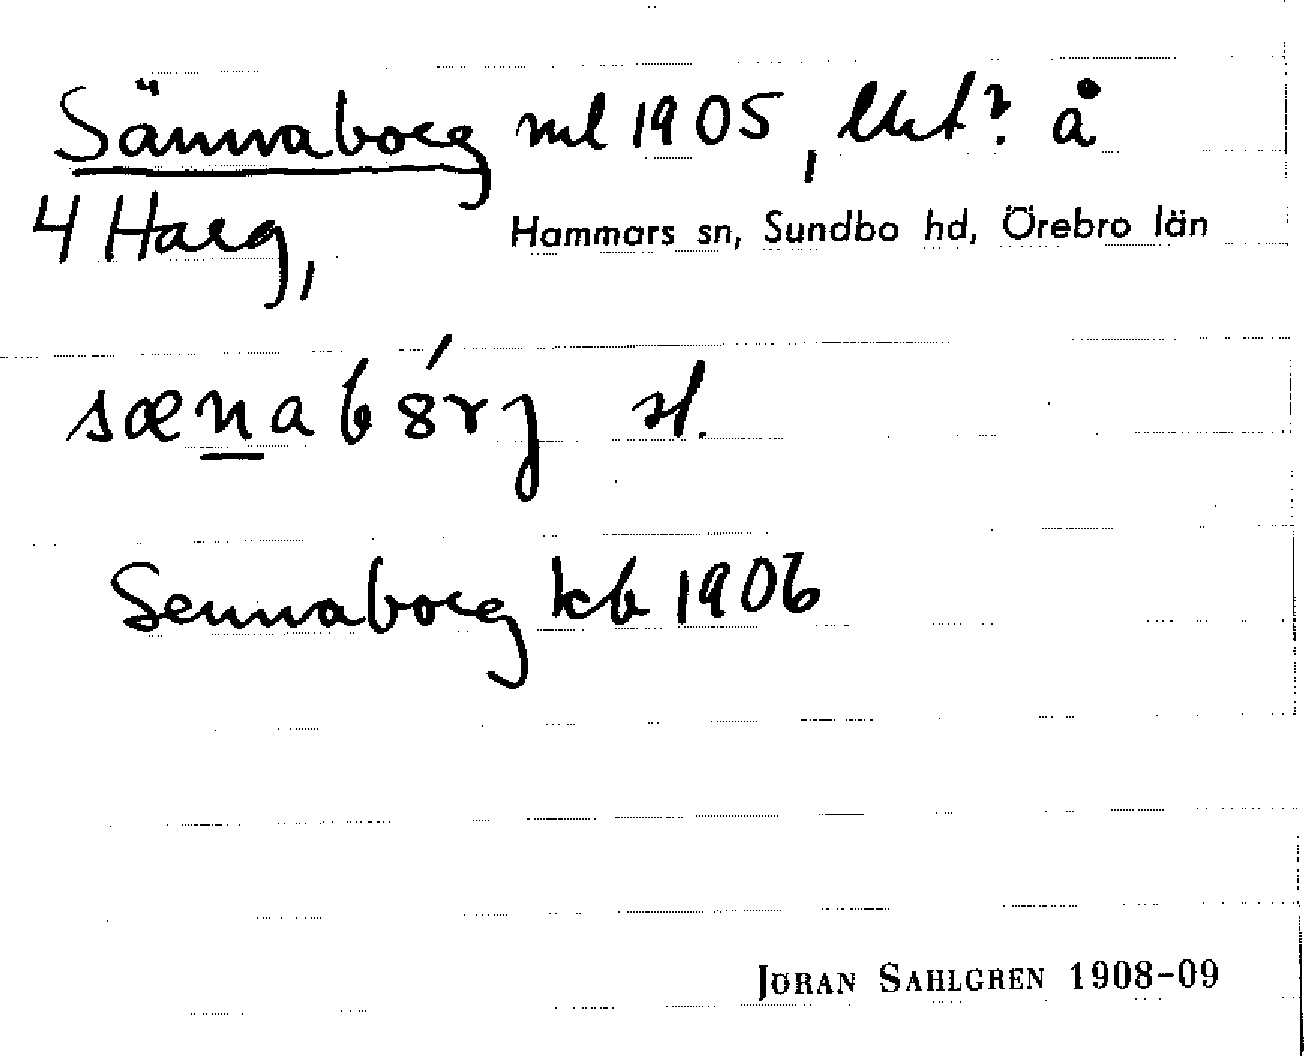 Sännaborg ml 1905, lht? å
4 Harg, Hammars sn, Sundbo hd, Örebro län
sænabȣ́rj sl.
Sennaborg kb 1906
JÖRAN SAHLGREN 1908-09